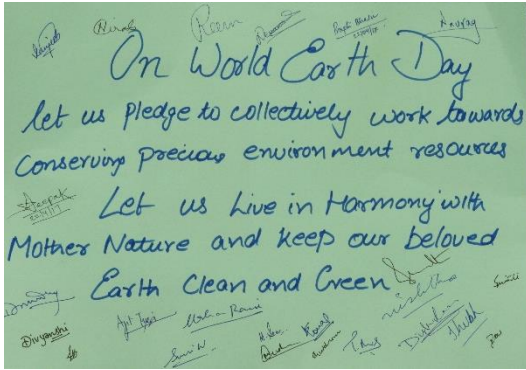 Niraj Reem Anurag
On World Earth Day
let us pledge to collectively work towards
Conserving precious environment resources
Deepak
Let us Live in Harmony with
Mother Nature and keep our beloved
Earth Clean and Green
Nishtha
Divyanshi